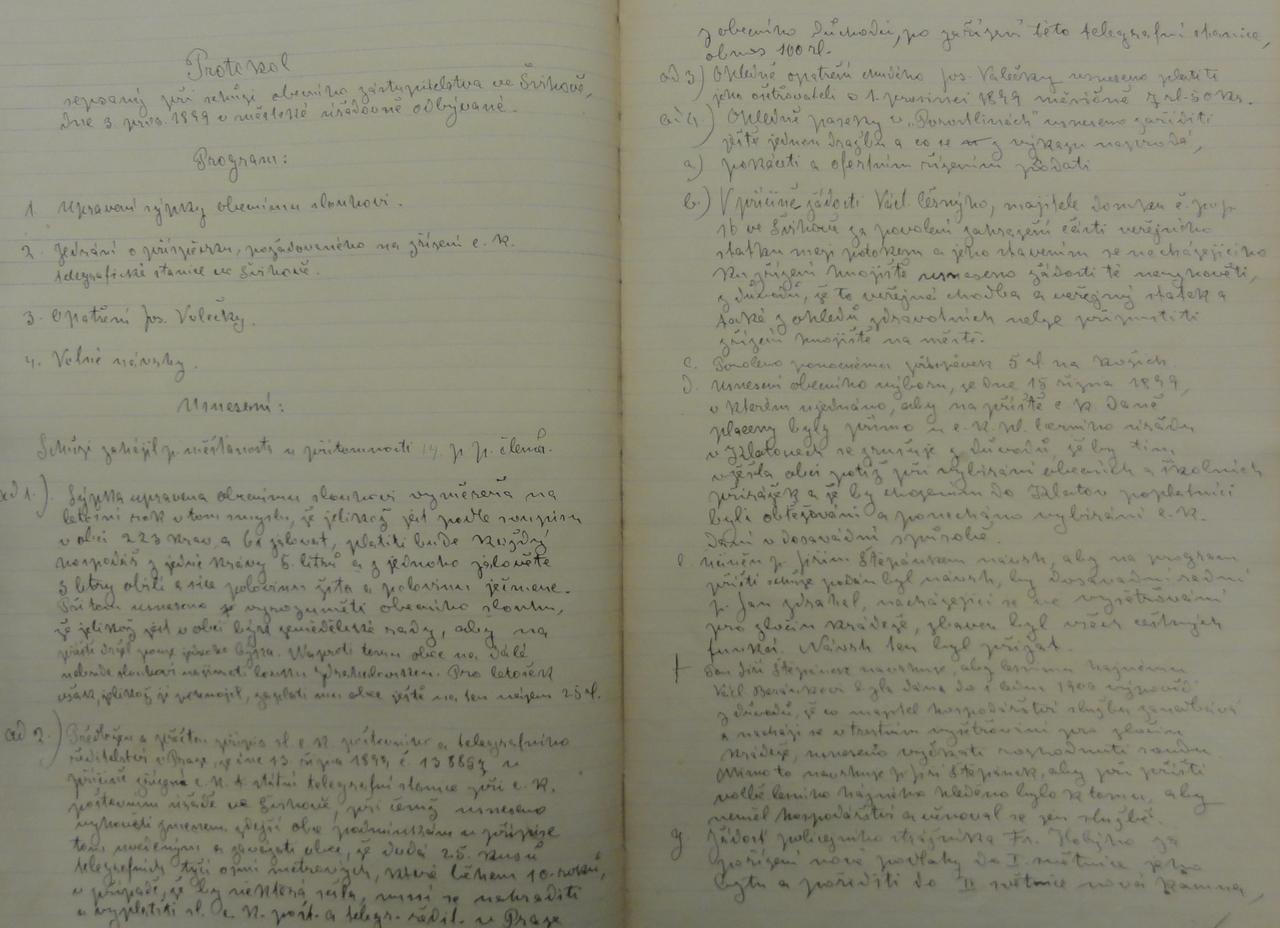 Protokol
sepsaný při schůzi obecního zastupitelstva ve Švihově,
dne 3. pros. 1899 v městské úřadovně odbývané.
Program:
1. Upravení sýpky obecnímu slouhovi.
2. Jednání o příspěvku, požadovaného na zřízení c. k.
telegrafické stanice ve Švihově.
3. Opatření Jos. Valečky.
4. Volné návrhy.
Usnesení:
Schůzi zahájil p. měšťanosta u přítomnosti 14 p. p. členů.
ad 1.) Sýpka upravena obecnímu slouhovi vyměřena na
letošní rok v tom smyslu, že jelikož jest podle soupisu
v obci 223 krav a 61 jalovat, platiti bude každý
hospodář z jedné krávy 5 litrů a z jednoho jalověte
3 litry obilí a sice polovinu žita a polovinu ječmene.
Při tom usneseno vyrozuměti obecního slouhu,
že jelikož jest v obci býk zemědělské rady, aby na
příště držel pouze jednoho býka. Naproti tomu obec na dále
nebude slouhovi najímati louku Zdrahalovskou. Pro letošek
však, jelikož ji pronajal, zaplatí mu obec ještě na ten nájem 25 zl.
ad 2.) Předložen a přečten přípis sl. c. k. poštovního a telegrafního
ředitelství v Praze, ze dne 13 října 1899 č. v
příčině zřízení c. k. státní telegrafní stanice při c. k.
poštovním úřadě ve Švihově, při čemž usneseno
vyhověti jménem zdejší obce podmínkám v přípise
tom uvedeným a zavázati obec, že dodá 25 kusů
telegrafních tyčí osmi metrových, které během 10 roků,
v případě, že by některá sešla, musí se nahraditi
a vyplatiti sl. c. k. pošt. a telegr. ředit. v Praze
z obecního důchodu, po zařízení této telegrafní stanice,
obnos 100 zl.
ad 3) Ohledně opatření chudého Jos. Valečky usneseno platiti
jeho ošetřovateli s 1. prosincem 1899 měsíčně 7 zl. 50 kr.
ad 4.) Ohledně paseky v „Porostlinách" usneseno zaříditi
ještě jednou dražbu a co se z výkazu neprodá,
a) pokáceti a ofertním řízením prodati
b.) V příčině žádosti Václ. Černýho, majitele domku č. pop.
16 ve Švihově za povolení zahrazení části veřejného
statku mezi potokem a jeho stavením se nacházejícího
ku zřízení hnojiště usneseno žádosti té nevyhověti,
z důvodů, že to veřejná chodba a veřejný statek a
také z ohledů zdravotních nelze připustiti
zřízení hnojiště na městě.
c. Povoleno ponocnému příspěvek 5 zl. na kožich.
d. Usnesení obecního výboru, ze dne 15 října 1899,
v kterém ujednáno, aby na příště c. k. daně
placeny byly přímo u c. k. hl. berního úřadu
v Klatovech se zrušuje z důvodů, že by tím
vzešla obci potíž při vybírání obecních a školních
přirážek a že by chozením do Klatov poplatníci
byli obtěžováni a ponecháno vybírání c. k.
daní v dosavádní způsobě.
e. Učiněn p. Jiřím Štěpánkem návrh, aby na program
příští schůze podán byl návrh, by dosavadní radní
p. Jan Zdrahal, nacházející se ve vyšetřování
pro zločin krádeže, zbaven byl všech čestných
funkcí. Návrh ten byl přijat.
f Pan Jiří Štěpánek navrhuje, aby lesnímu hajnému
Václ. Beránkovi byla dána do 1 ledna 1900 výpověď
z důvodů, že co majitel hospodářství službu zanedbává
a nachází se v trestním vyšetřování pro zločin
krádeže, usneseno vyčkati rozhodnutí soudu.
Mimo to navrhuje p. Jiří Štěpánek, aby při příští
volbě lesního hajného hleděno bylo k tomu, aby
neměl hospodářství a věnoval se jen službě.
g Žádost policejního strážníka Fr. za
pořízení nové podlahy do I. světnice jeho
bytu a poříditi do II světnice nová kamna,